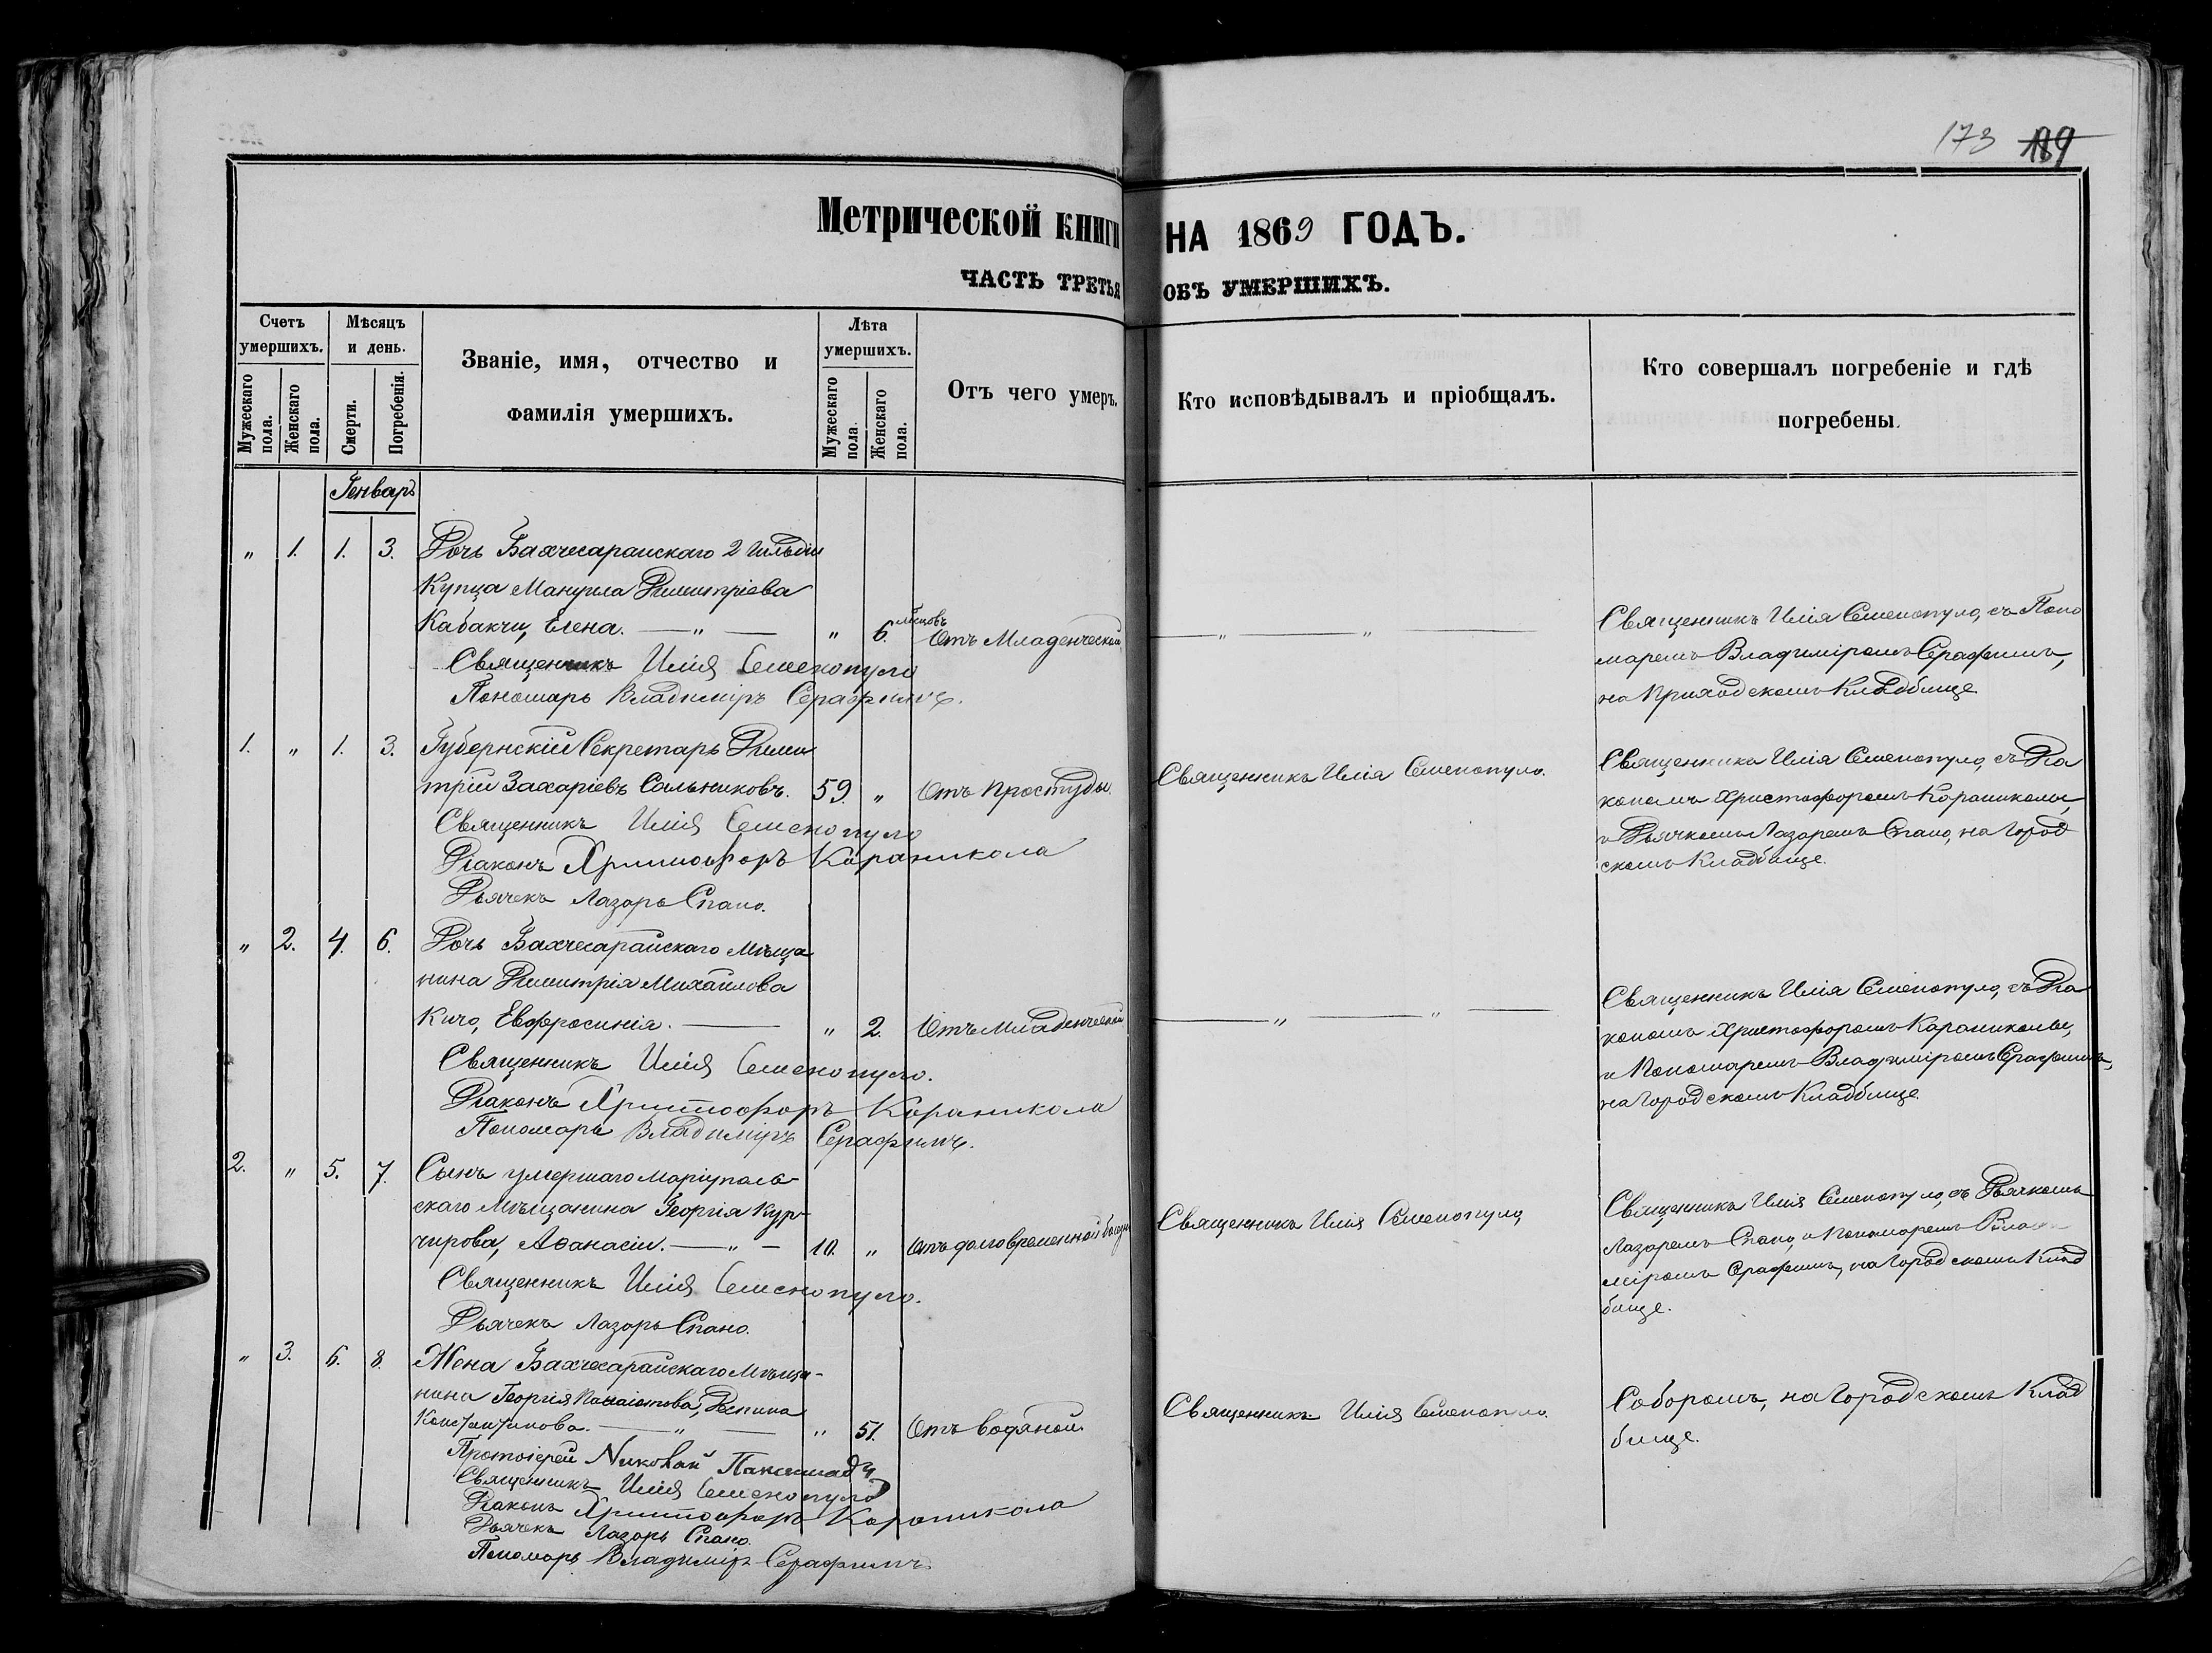 173 189
Метрической книги НА 1869 ГОДЪ.
ЧАСТЬ ТРЕТЬЯ ОБЪ УМЕРШИХЪ.
Счетъ умершихъ.
Мужескаго пола.
Женскаго пола.
Мѣсяцъ и день.
Смерти.
Погребенія.
Званіе, имя, отчество и
фамилія умершихъ.
Лѣта умершихъ.
Мужескаго пола.
Женскаго пола.
Отъ чего умеръ.
Кто исповѣдывалъ и пріобщалъ.
Кто совершалъ погребеніе и гдѣ
погребены.
Генварь
" 1. 1. 3. Дочь Бахчесарайскаго 2 гильдіи
Купца Мануила Димитріева
Кабакчи, Елена. — " — " 6. мѣсяцовъ Отъ Младенческой — " — " —
Священникъ Илія Семенопуло
Пономарь Владиміръ Серафимъ.
Священникъ Илія Семенопуло, съ Поно
маремъ Владиміромъ Серафимъ,
на Приходскомъ Кладбище
1. " 1. 3. Губернскій Секретарь Дими
трій Захаріевъ Сальниковъ. 59. " Отъ Простуды. Священникъ Илія Семенопуло.
Священникъ Илія Семенопуло
Діаконъ Христофоръ Караникола
Дьячекъ Лазарь Спано.
Священникъ Илія Семенопуло, съ Діа
кономъ Христофоромъ Караниколы,
и Дьячкомъ Лазаремъ Спано, на Город
скомъ Кладбище.
" 2. 4. 6. Дочь Бахчесарайскаго Мѣща
нина Димитрія Михайлова
Кичо, Евфросинія. — " 2. Отъ Младенческой — " — " —
Священникъ Илія Семенопуло.
Діаконъ Христофоръ Караникола
Пономарь Владиміръ Серафимъ.
Священникъ Илія Семенопуло, съ Діа
кономъ Христофоромъ Караниколы,
и Пономаремъ Владиміромъ Серафимъ,
на Городскомъ Кладбище
2. " 5. 7. Сынъ умершаго Маріуполь-
скаго Мѣщанина Георгія Кур-
чирова, Аѳанасій. — " — 10. " Отъ долговременной Священникъ Илія Семенопуло,
Священникъ Илія Семенопуло.
Дьячекъ Лазарь Спано.
Священникъ Илія Семенопуло, съ Дьячкомъ
Лазаремъ Спано, и Пономаремъ Влади
міромъ Серафимъ, на Городскомъ Клад
бище.
" 3. 6. 8. Жена Бахчесарайскаго Мѣща-
нина Георгія Панаіотова, Деспина
Константинова. — " — " 51. Отъ водяной. Священникъ Илія Семенопуло.
Протоіерей Николай
Священникъ Илія Семенопуло
Діаконъ Христофоръ Караникола
Дьячекъ Лазарь Спано.
Пономарь Владиміръ Серафимъ.
Соборомъ, на Городскомъ Клад
бище.